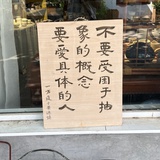 不要愛用于抽
象的概念
要愛具体的人